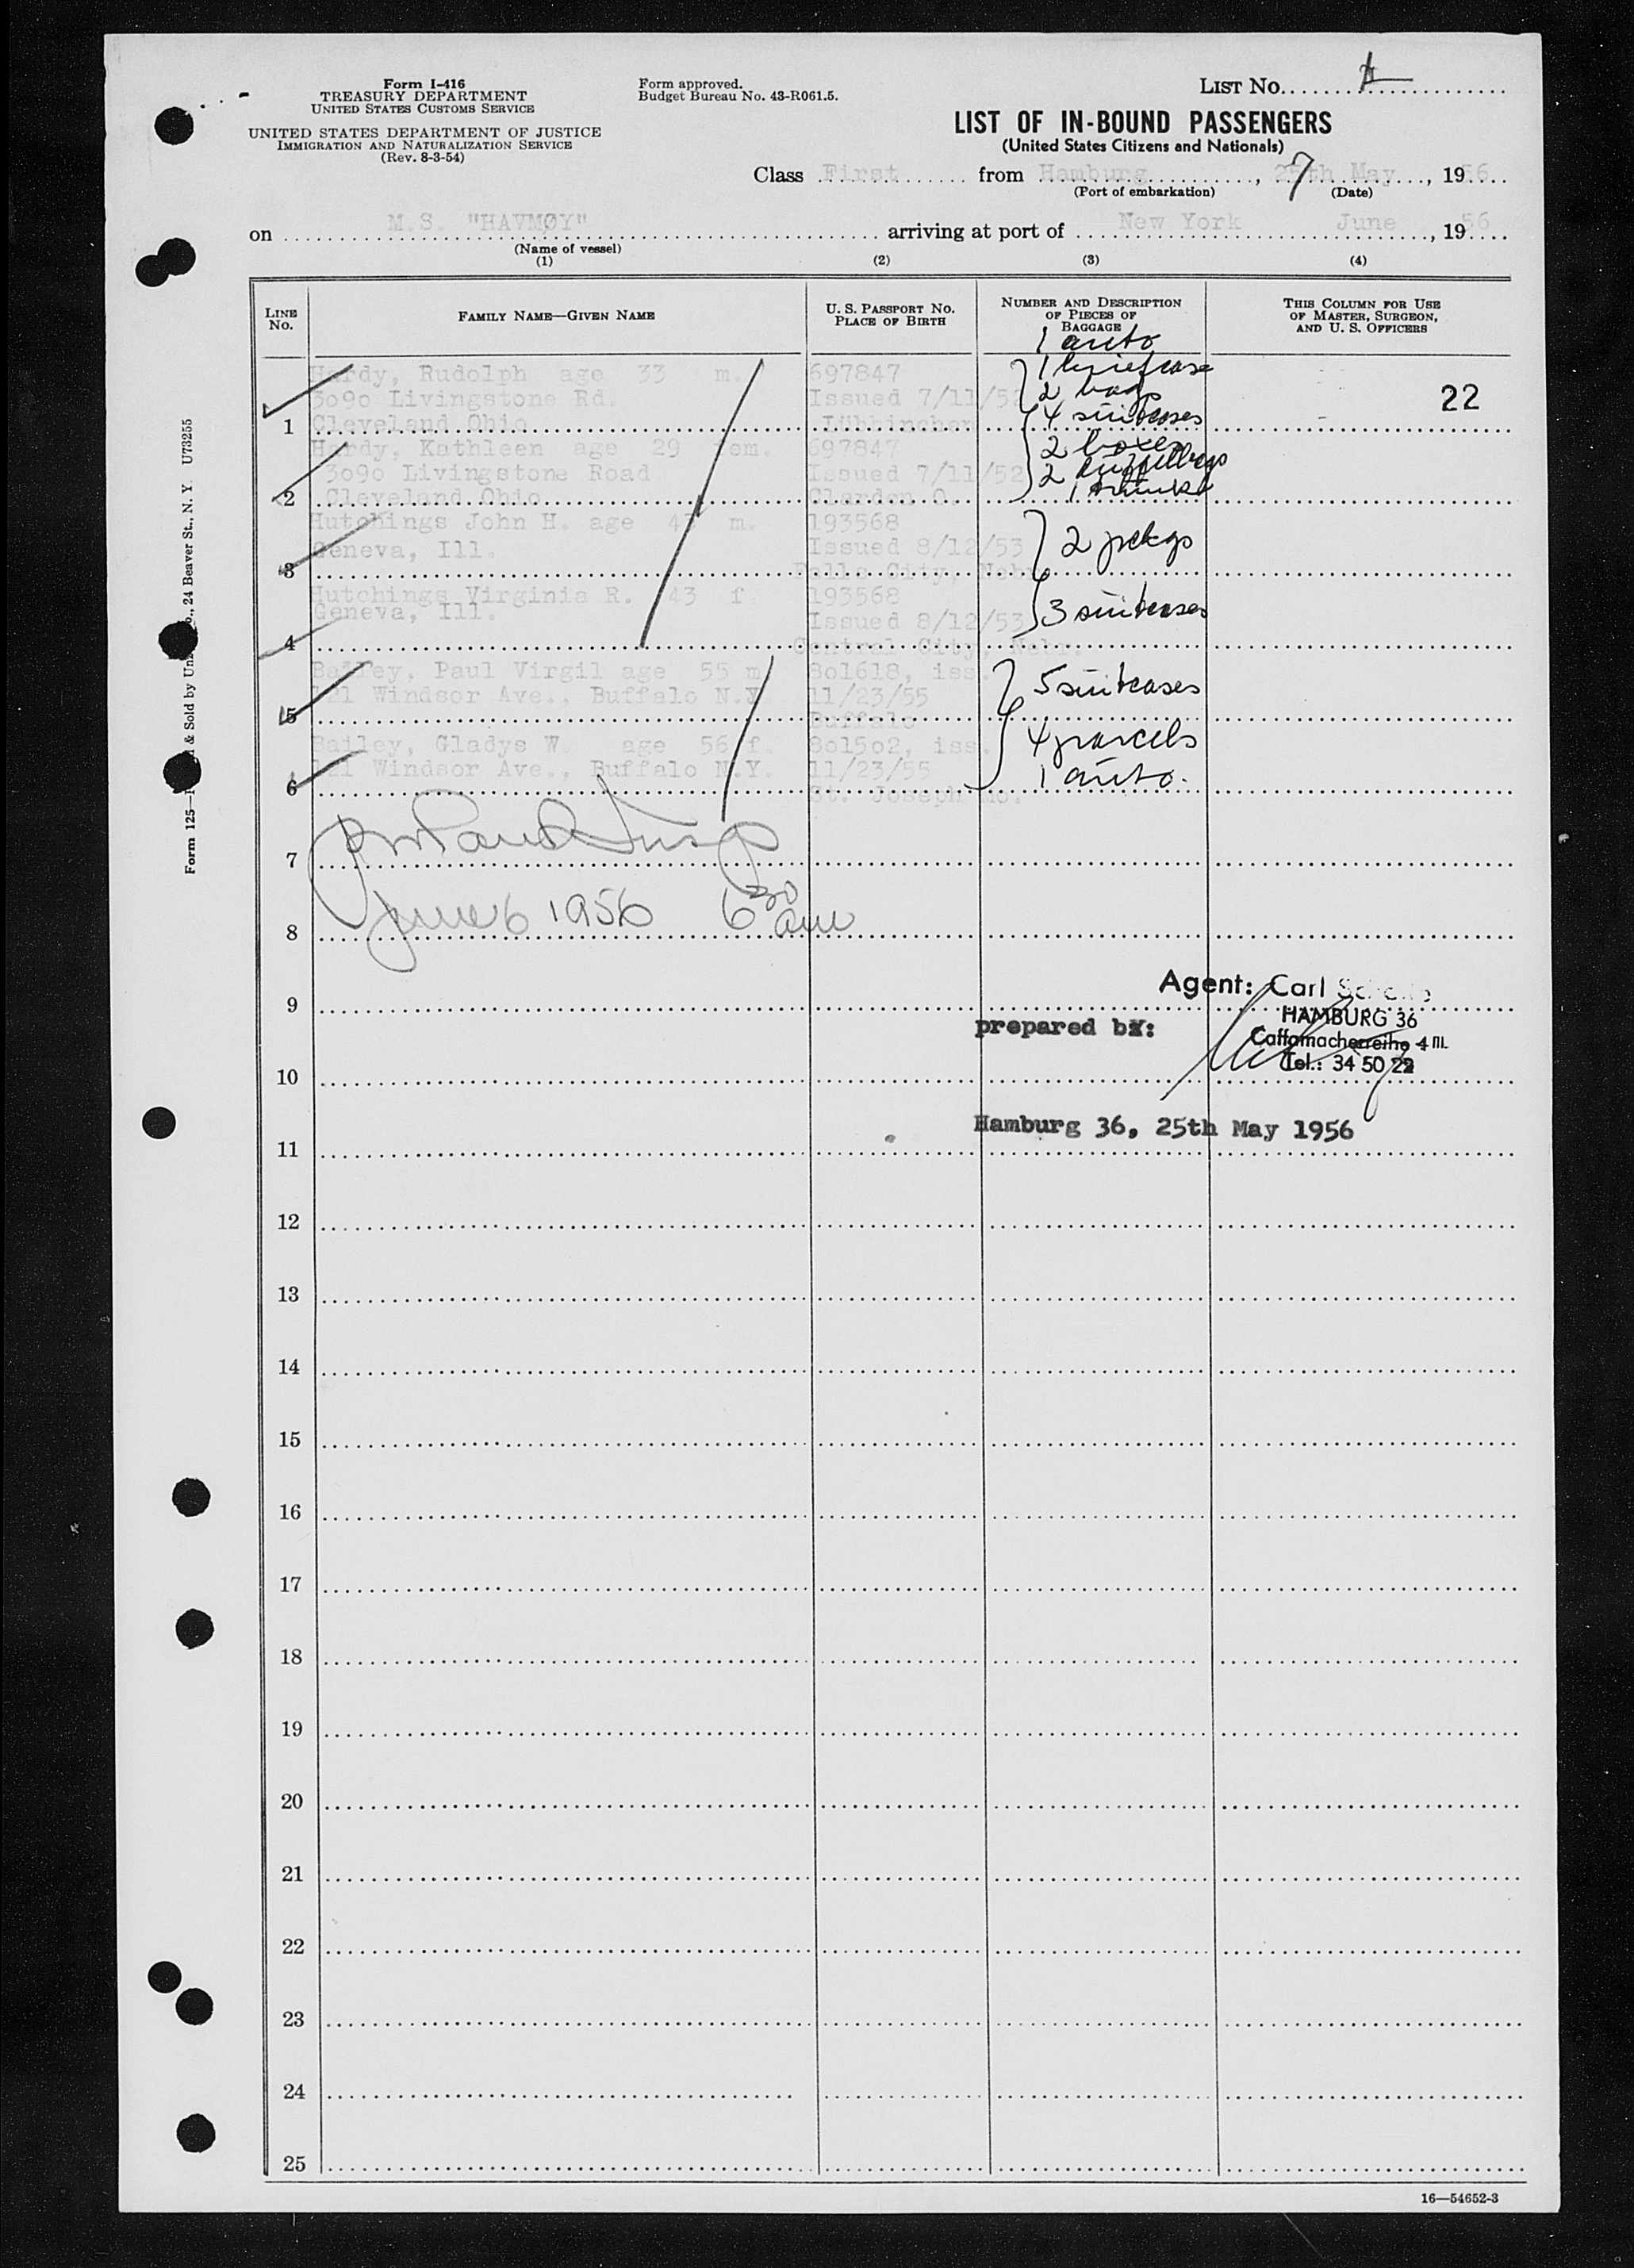 Form I-416
TREASURY DEPARTMENT
UNITED STATES CUSTOMS SERVICE
UNITED STATES DEPARTMENT OF JUSTICE
IMMIGRATION AND NATURALIZATION SERVICE
(Rev. 8-3-54)
Form approved.
Budget Bureau No. 43-R061.5.
LIST No.
LIST OF IN-BOUND PASSENGERS
(United States Citizens and Nationals)
Class First from Hamburg, 25th May, 1956
7
(Port of embarkation) (Date)
on M.S. "HAVMØY" arriving at port of New York June, 1956
(Name of vessel)
(1) (2) (3) (4)
LINE No. FAMILY NAME—GIVEN NAME U. S. PASSPORT NO. PLACE OF BIRTH NUMBER AND DESCRIPTION OF PIECES OF BAGGAGE THIS COLUMN FOR USE OF MASTER, SURGEON, AND U. S. OFFICERS
1 auto
Hardy, Rudolph age 33 m. 697847 1 briefcase
3o9o Livingstone Rd. Issued 7/11/52 2 bags 22
1 Cleveland Ohio 4 suitcases
Hardy, Kathleen age 29 fem. 697847 2 boxes
3o9o Livingstone Road Issued 7/11/52 2 duffelbags
2 Cleveland Ohio Clardon O. 1 trunk
Hutchings John H. age m. 193568
Geneva, Ill. Issued 8/12/53 2 pckgs
3 Falls City, Nebr.
Hutchings Virginia R. 43 f 193568
Geneva, Ill. Issued 8/12/53 3 suitcases
4 Central City, Nebr.
Bailey, Paul Virgil age 55 m 8o1618, iss.
121 Windsor Ave., Buffalo N.Y. 11/23/55 5 suitcases
5 Buffalo
Bailey, Gladys W. age 56 f. 8o15o2, iss. 4 parcels
121 Windsor Ave., Buffalo N.Y. 11/23/55 1 auto.
6 St. Joseph Mo.
7
June 6 1956 6 30 am
8
9
Agent: Carl
prepared by: HAMBURG 36
Caffamacherreihe 4 III.
Tel.: 34 50 22
10
Hamburg 36, 25th May 1956
11
12
13
14
15
16
17
18
19
20
21
22
23
24
25
16—54652-3
Form 125— & Sold by 24 Beaver St., N. Y U73255